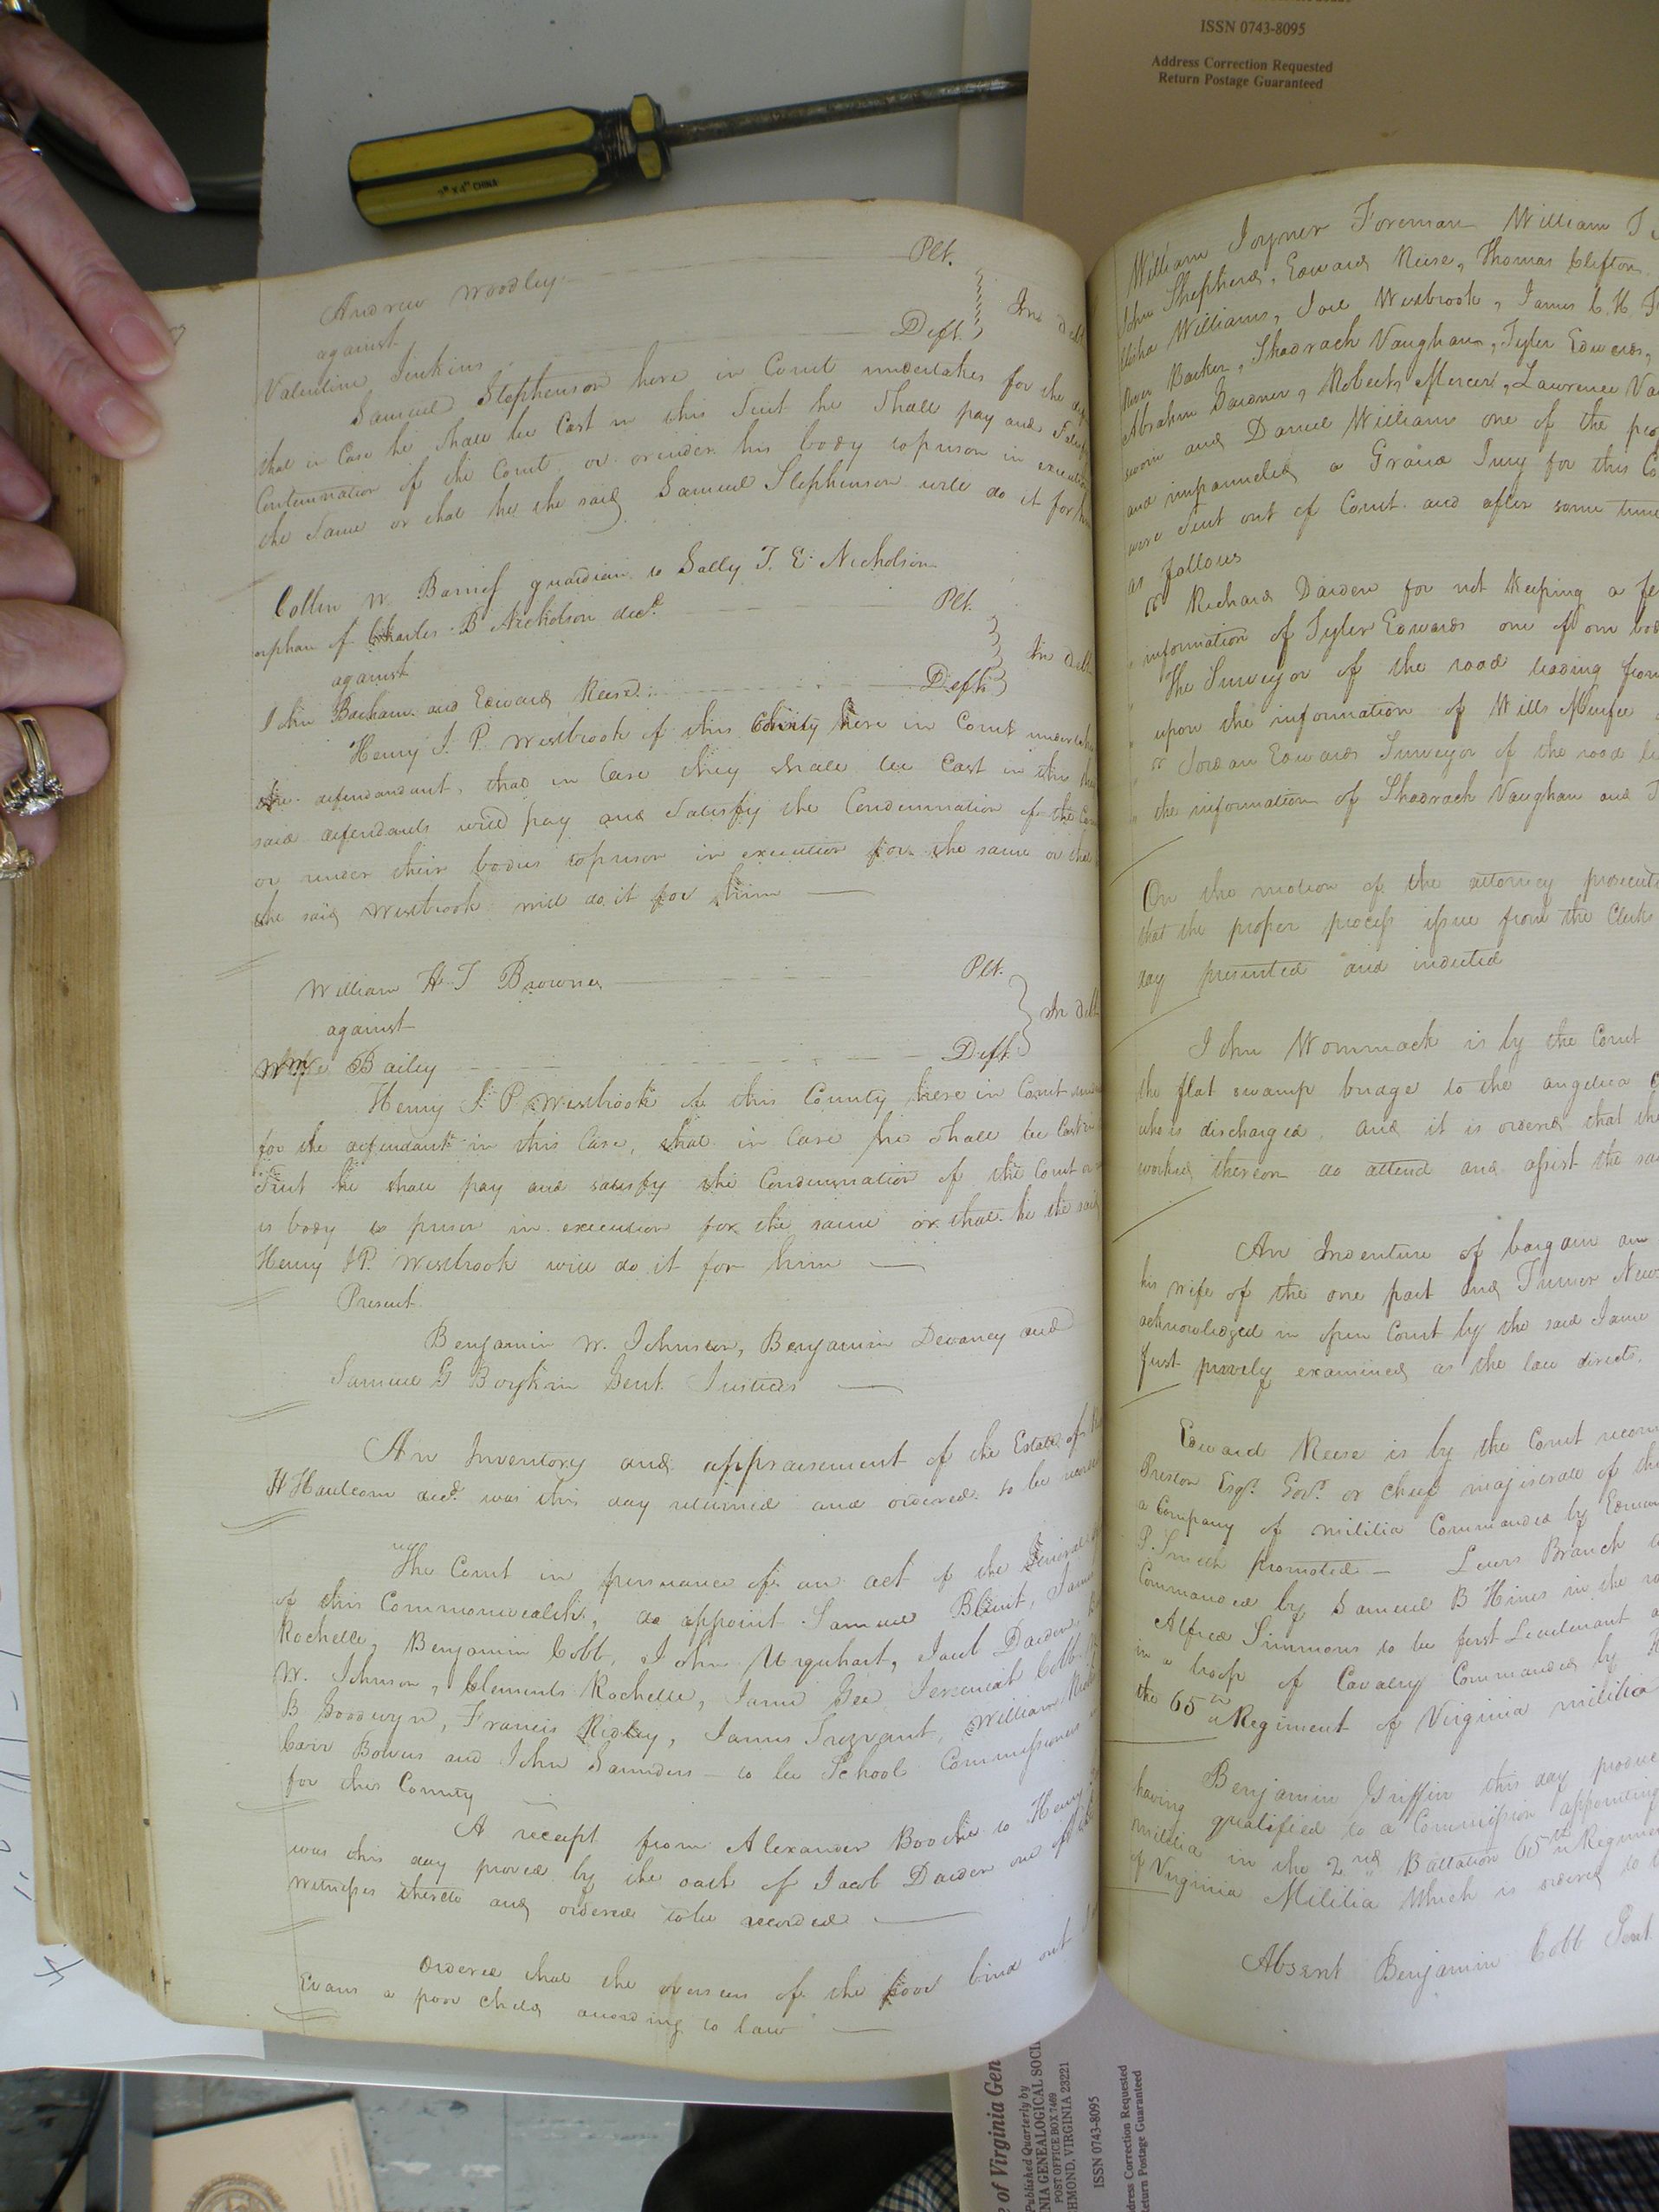 ISSN 0743-8095
Address Correction Requested
Return Postage Guaranteed
CHINA
Andrew Woodley Plt.
against
Valentine Jenkins Deft. In debt
Samuel Stephenson here in Court undertakes for the
that in Case he shall be Cast in this Suit he Shall pay and Satisfy
Condemnation of the Court or render his body to prison in execution
the Same or that he the said Samuel Stephenson will do it for
Collin W. Barnes guardian to Sally T. E. Nicholson
orphan of Charles B Nicholson decd. Plt.
against In debt
John Barham and Edward Reese Defts
Henry J. P. Westbrook of this County here in Court
the defendandant, that in Case they shall be Cast in this the
said defendants will pay and Satisfy the Condemnation of the
or render their bodies to prison in execution for the same or that
the said Westbrook will do it for him
William H T Browne Plt.
against In debt
Bailey Deft.
Henry J. P Westbrook of this County here in Court
for the defendant in this Case, that in Case he shall be Cast in
Suit he shall pay and satisfy the Condemnation of the Court or
is body to prison in execution for the same or that he the said
Henry J P. Westbrook will do it for him
Present
Benjamin W. Johnston, Benjamin Devaney and
Samuel G Boykin Gent. Justices
An Inventory and appraisement of the Estate of
H decd. was this day returned and ordered to be
The Court in persuance of an act of the General
of this Commonwealth, do appoint Samuel Blunt, James
Rochelle, Benjamin Cobb, John Urquhart, Jacob Darden
W. Johnson, Clements Rochelle, James Gee Jeremiah Cobb
B Goodwyn, Francis Ridley, James Trezvant, William
Carr Bowers and John Saunders to be School Commissioners
for this County
A receipt from Alexander Boothe to Henry
was this day proved by the oath of Jacob Darden one of the
Witnesses thereto and ordered to be recorded
Ordered that the overseers of the poor bind out
Evans a poor child according to law
William Joyner Foreman William T
John Shepherd, Edward Reese, Thomas Clifton
Elisha Williams, Joel Westbrook, James C. H.
Barker, Shadrach Vaughan, Tyler Edwards,
Abraham Gardner, Roberts Mercer, Lawrence
sworn and Daniel Williams one of the
and impannelled a Grand Jury for this
were Sent out of Court and after some time
as follows
Richard Darden for not Keeping a
information of Tyler Edwards one of our
The Surveyor of the road leading from
upon the information of Wills
Jordan Edwards Surveyor of the road
the information of Shadrach Vaughan and
On the motion of the attorney
that the proper process issue from the Clerks
day presented and indicted
John Wommack is by the Court
the flat swamp bridge to the angelica
who is discharged, and it is ordered that the
worked thereon do attend and assist the
An Indenture of bargain and
his wife of the one part and Turner
acknowledged in open Court by the said Jame
first privily examined as the law directs.
Edward Reese is by the Court
Preston Esqr. Govr. or chief majistrate of the
a Company of militia Commanded by
P. Smith promoted Lewis Branch
Commanded by Samuel B Hines in the
Alfred Simmons to be first Lieutenant
in a troop of Cavalry Commanded by
the 65th Regiment of Virginia militia
Benjamin Griffin this day
having qualified to a Commission appointing
militia in the 2nd Battalion 65th Regiment
of Virginia Militia Which is ordered to
Absent Benjamin Cobb Gent
of Virginia Gen
Published Quarterly by
NIA GENEALOGICAL
POST OFFICE BOX 7469
HMOND, VIRGINIA 23221
ISSN 0743-8095
dress Correction Requested
eturn Postage Guaranteed